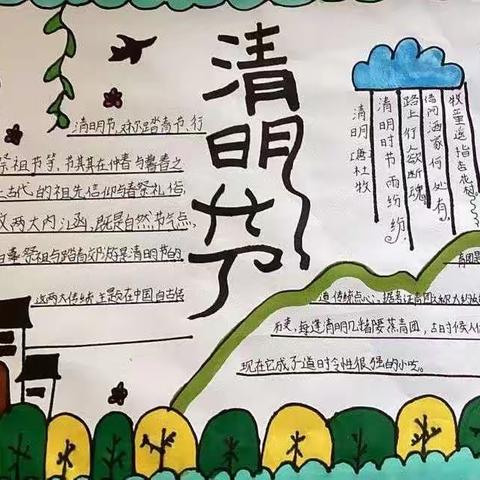 清明节
清明节，又称踏青节、行
祭祖节等，节其其在仲春与暮春之
上古代的祖先信仰与春祭礼俗，
两大内涵，既是自然节气点，
祭祖与踏青郊游是清明节的
这两大传统主题在中国自古传
清明 唐 杜牧
清明时节雨纷纷，
路上行人欲断魂
借问酒家何处有，
牧童遥指杏花村
青团是
道传统点心，据考证青团
历史，每逢清明几乎都要蒸青团，古时候人
现在它成了一道时令性很强的小吃。